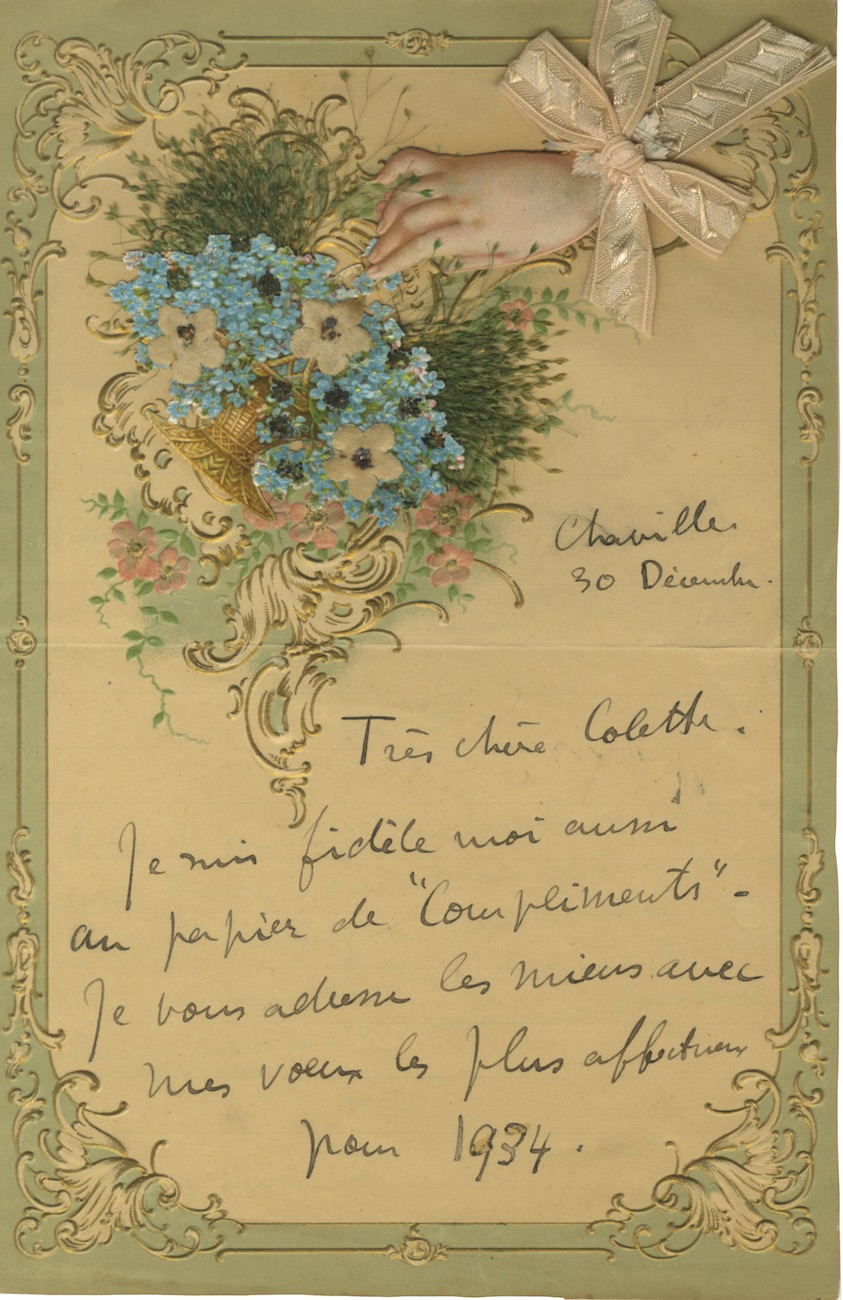 Chaville.
30 Décembre.
Très chère Colette.
Je suis fidèle moi aussi
au papier de "Compliments" -
Je vous adresse les miens avec
mes vœux les plus affectueux
pour 1934.